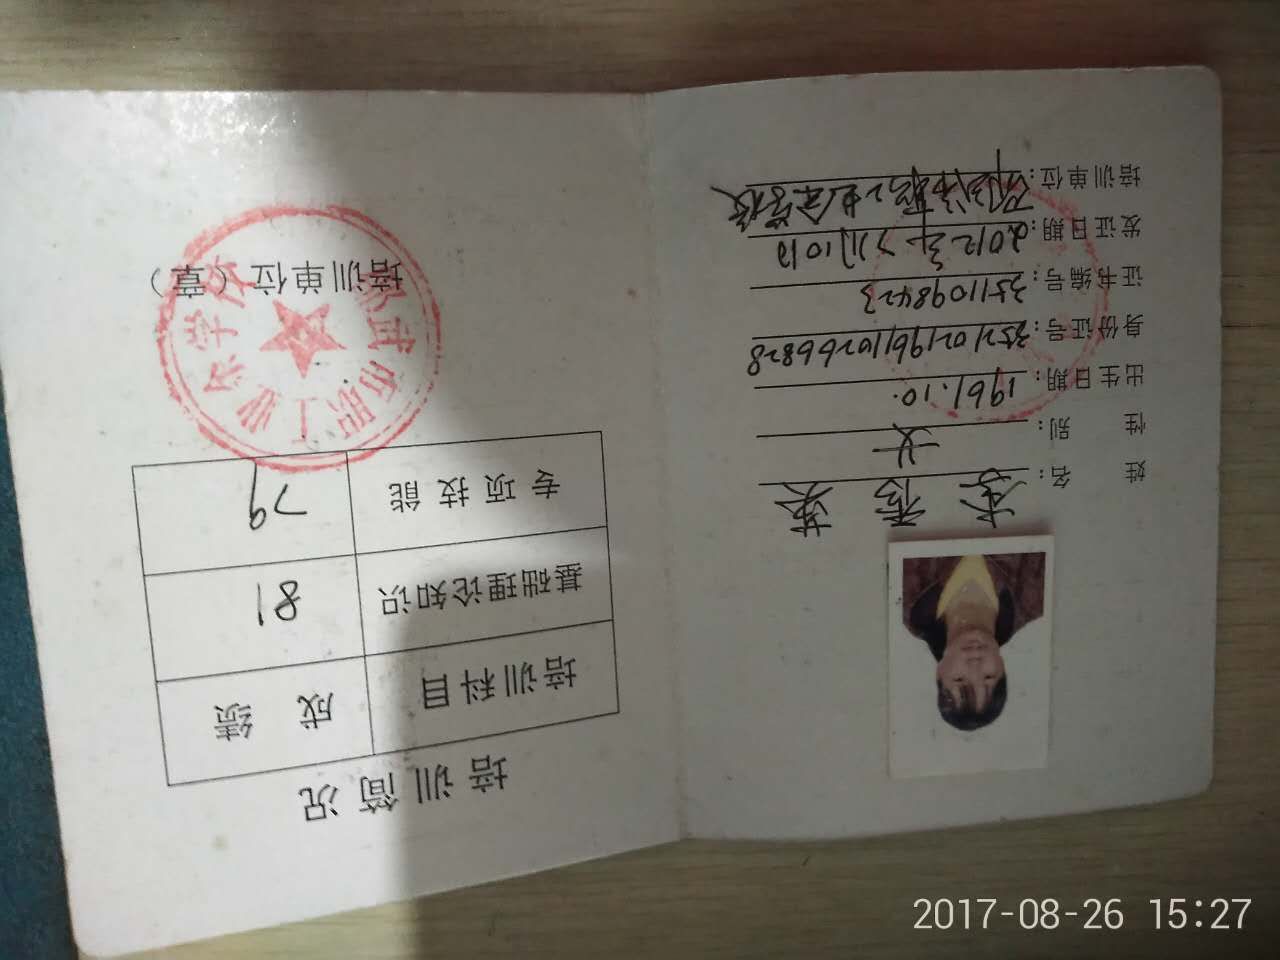 姓 名: 李秀英
性 别: 女
出生日期: 1961.10.
身份证号: 352102196110266828
证书编号: 3511098423
发证日期: 2012年7月10日
培训单位: 邵武市职工业余学校
培训简况
培训科目 成绩
基础理论知识 81
专项技能 79
培训单位（章）
邵武市职工业余学校
2017-08-26 15:27